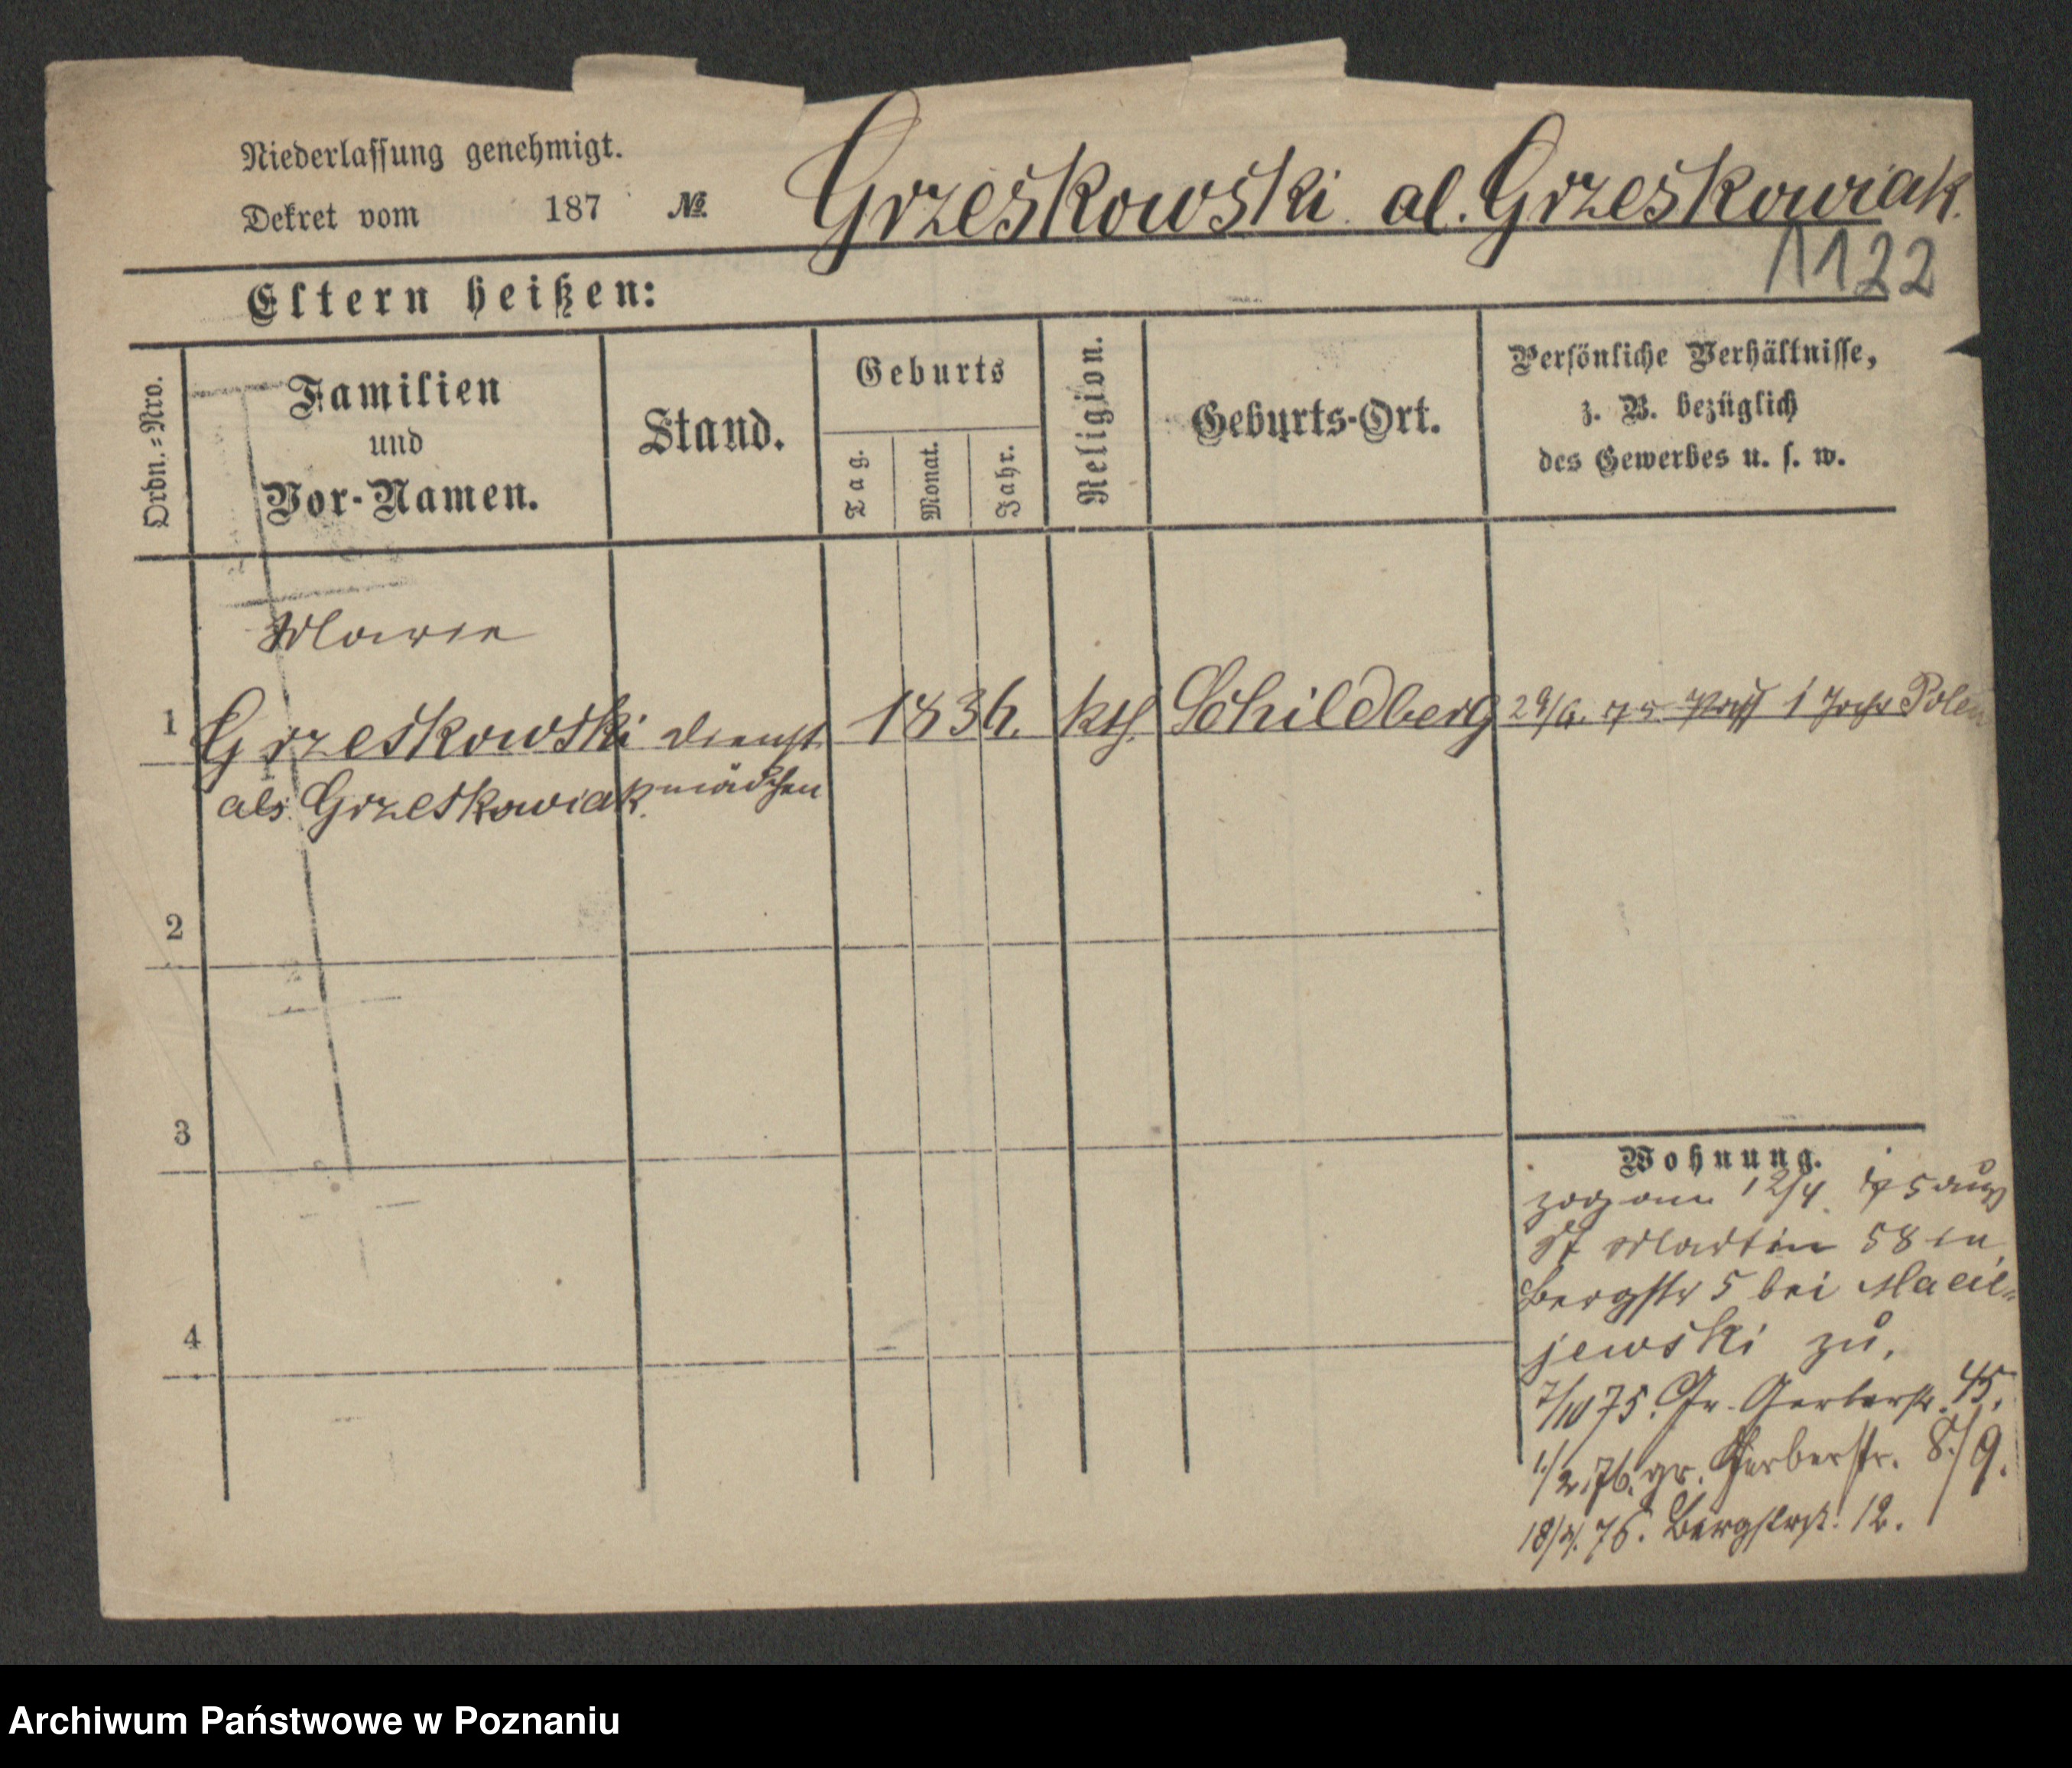 Niederlassung genehmigt.
Dekret vom 187 №
Grzeskowski al. Grzeskowiak.
1122
Eltern heißen:
Ordn.=Nro.
Familien
und
Vor-Namen.
Stand.
Geburts
Tag.
Monat.
Jahr.
Religion.
Geburts-Ort.
Persönliche Verhältnisse,
z. B. bezüglich
des Gewerbes u. s. w.
Marie
1 Grzeskowski Dienst 1836. kth. Schildberg 29/6. 75 1 Jahr Polen
als Grzeskowiak. mädchen
2
3
4
Wohnung.
zog am 12/4. 75 aus
St Martin 58 in
Bergstr 5 bei Maciejewski zu.
7/10 75. Gr. Gerberstr. 45.
1/2. 76. gr. Gerberstr. 8/9.
76. Bergstr. 12.
Archiwum Państwowe w Poznaniu